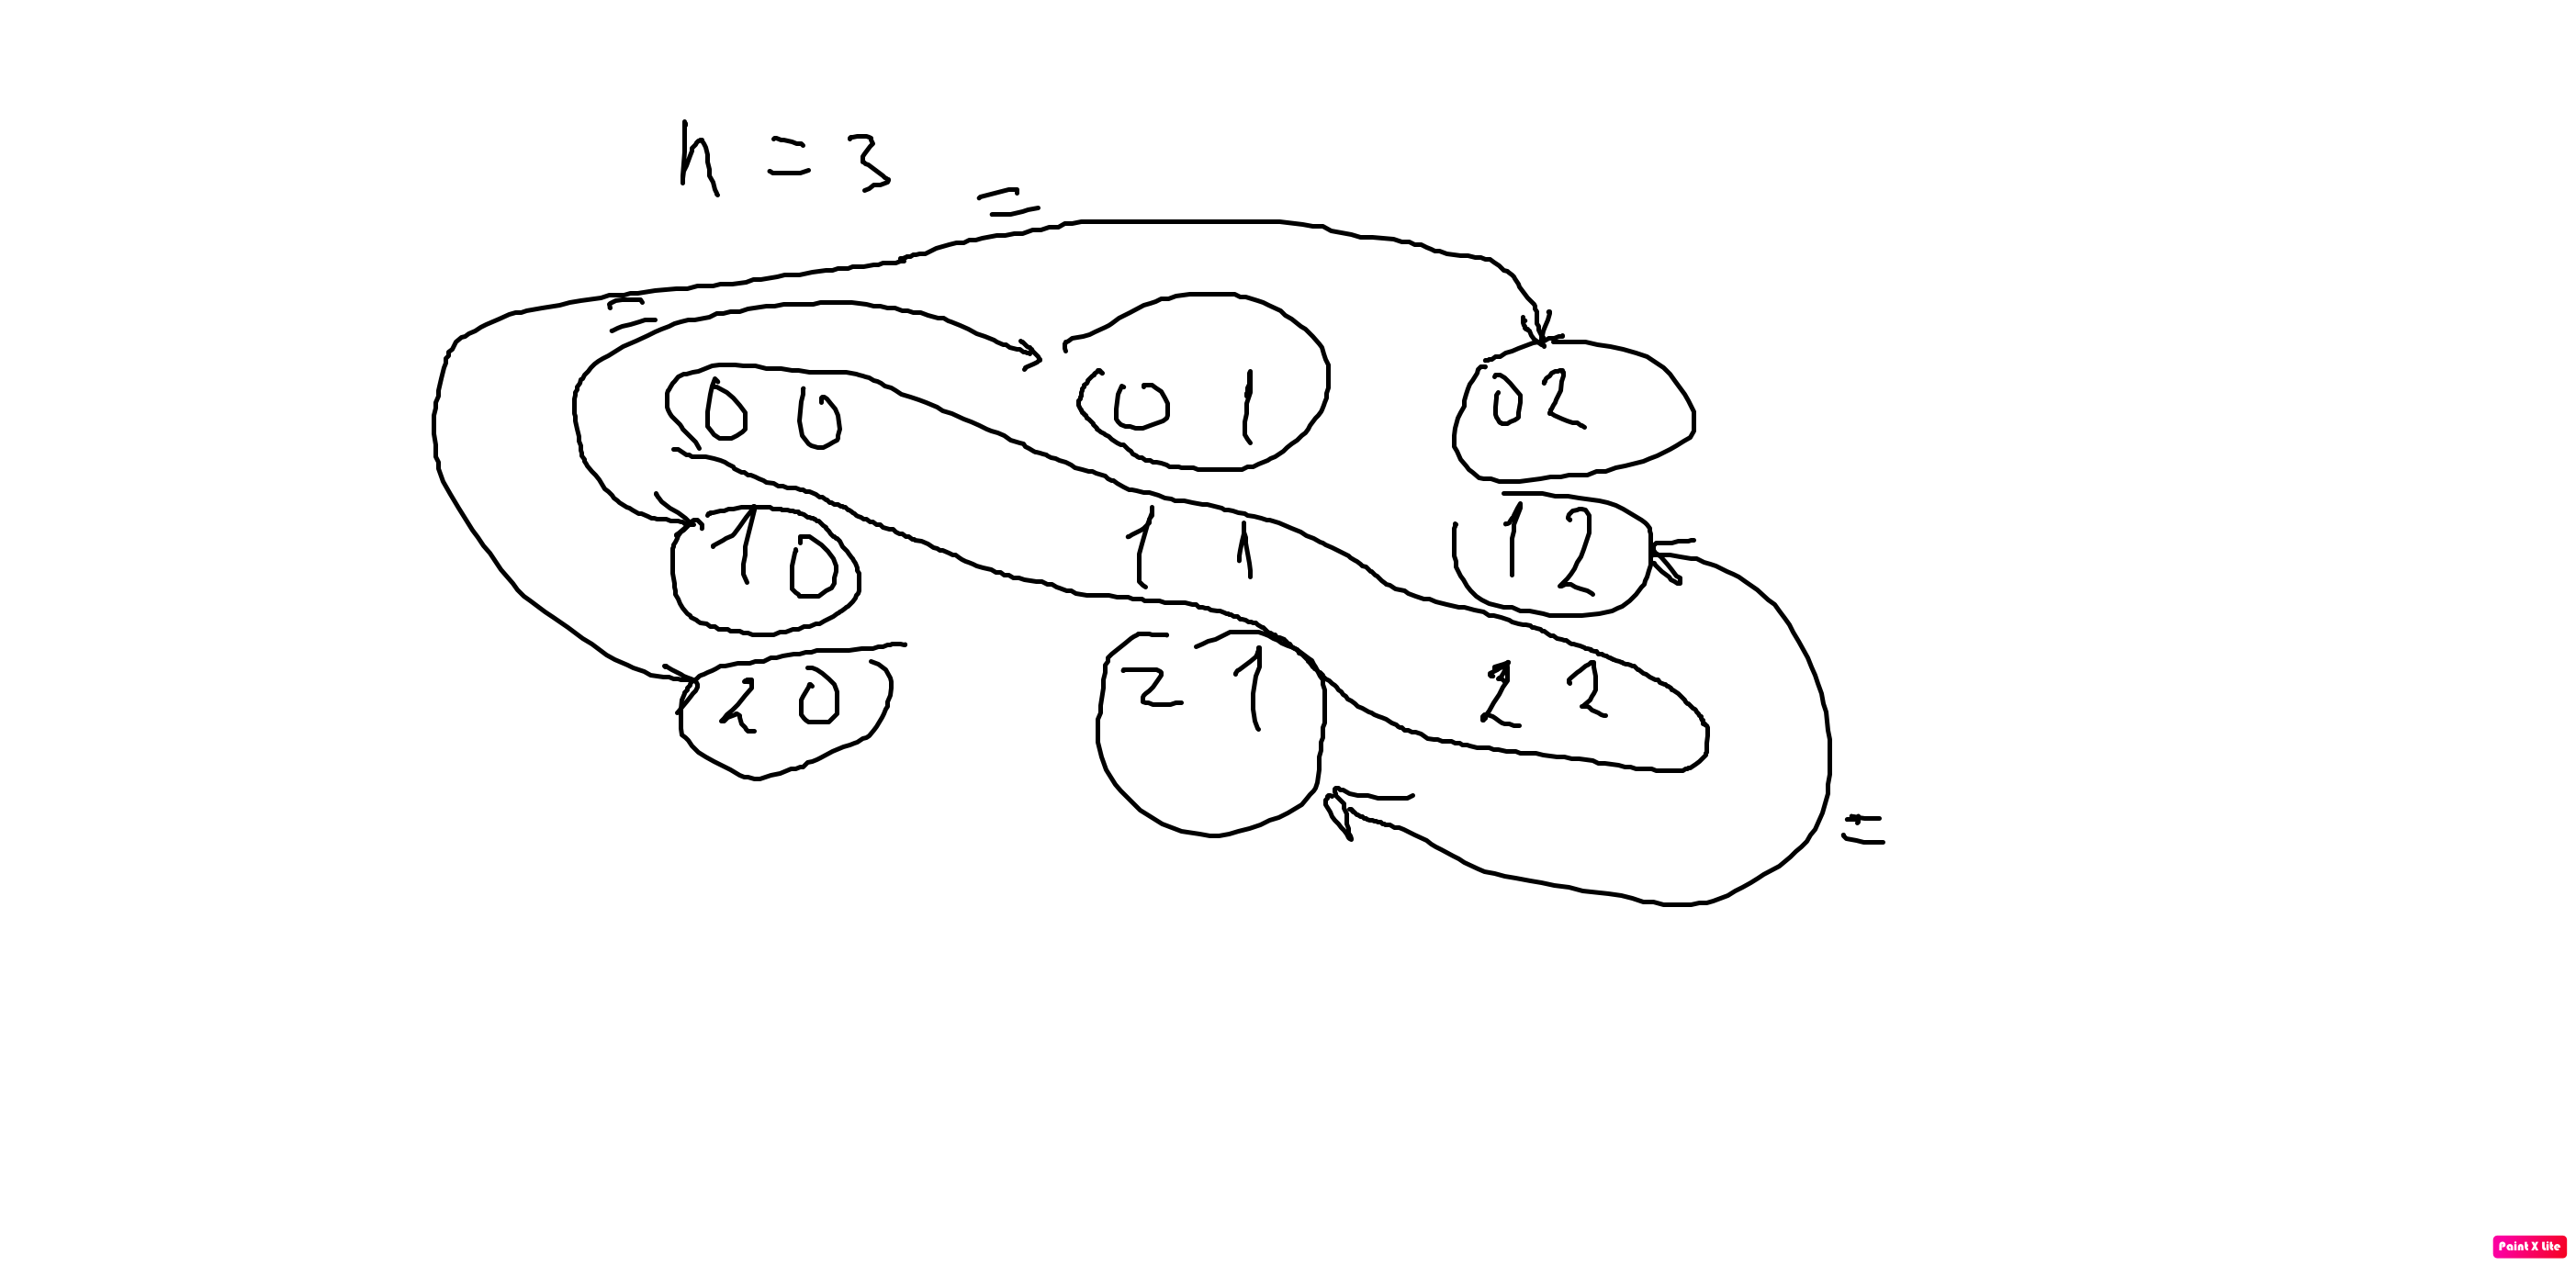 n = 3
=
=
00 01 02
10 11 12
20 21 22
=
Paint X Lite